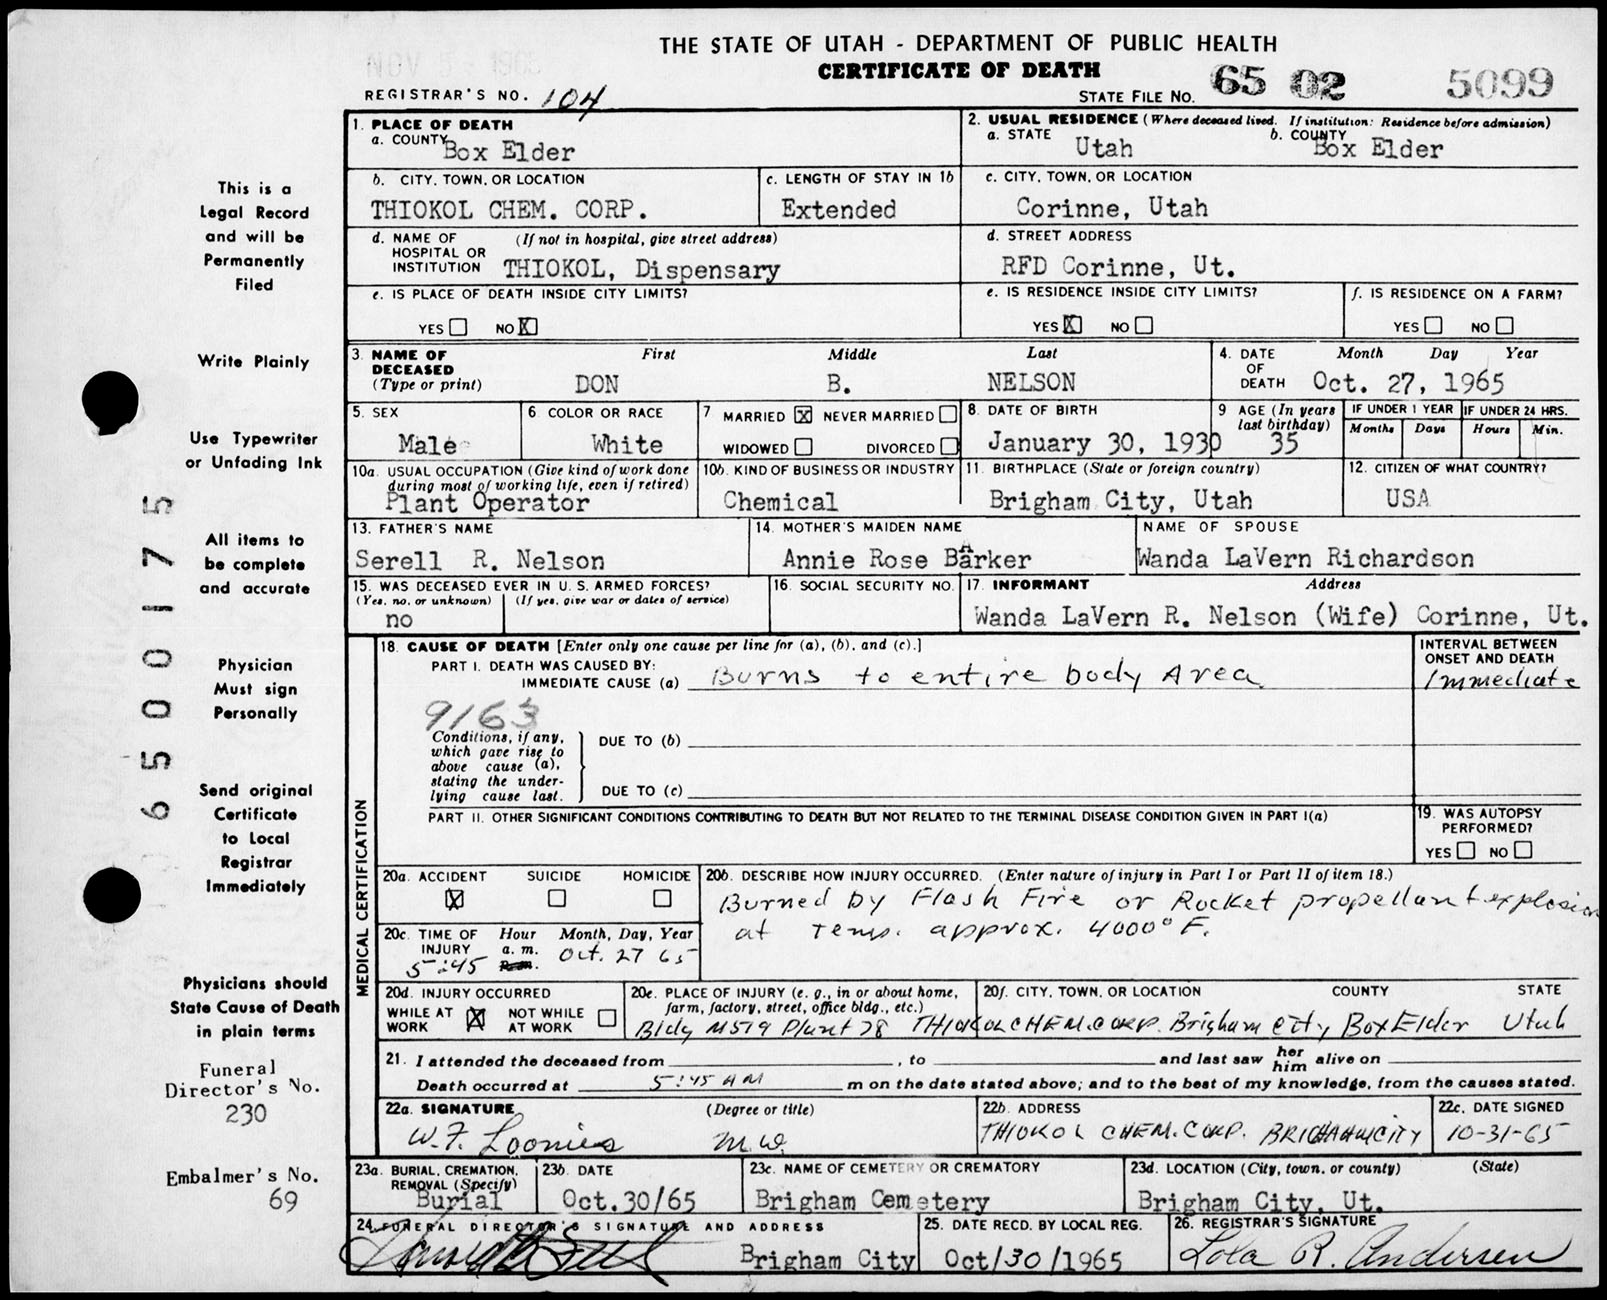 THE STATE OF UTAH - DEPARTMENT OF PUBLIC HEALTH
NOV 5 - 1965
CERTIFICATE OF DEATH
REGISTRAR'S NO. 104
STATE FILE NO. 65 02 5099
This is a
Legal Record
and will be
Permanently
Filed
Write Plainly
Use Typewriter
or Unfading Ink
All items to
be complete
and accurate
Physician
Must sign
Personally
Send original
Certificate
to Local
Registrar
Immediately
Physicians should
State Cause of Death
in plain terms
Funeral
Director's No.
230
Embalmer's No.
69
6500175
1. PLACE OF DEATH
a. COUNTY
Box Elder
2. USUAL RESIDENCE (Where deceased lived. If institution: Residence before admission)
a. STATE
Utah
b. COUNTY
Box Elder
b. CITY, TOWN, OR LOCATION
THIOKOL CHEM. CORP.
c. LENGTH OF STAY IN 1b
Extended
c. CITY, TOWN, OR LOCATION
Corinne, Utah
d. NAME OF (If not in hospital, give street address)
HOSPITAL OR
INSTITUTION THIOKOL, Dispensary
d. STREET ADDRESS
RFD Corinne, Ut.
e. IS PLACE OF DEATH INSIDE CITY LIMITS?
YES NO X
e. IS RESIDENCE INSIDE CITY LIMITS?
YES X NO
f. IS RESIDENCE ON A FARM?
YES NO
3. NAME OF First Middle Last
DECEASED
(Type or print) DON B. NELSON
4. DATE Month Day Year
OF
DEATH Oct. 27, 1965
5. SEX
Male
6 COLOR OR RACE
White
7 MARRIED X NEVER MARRIED
WIDOWED DIVORCED
8. DATE OF BIRTH
January 30, 1930
9 AGE (In years
last birthday)
35
IF UNDER 1 YEAR
Months Days
IF UNDER 24 HRS.
Hours Min.
10a. USUAL OCCUPATION (Give kind of work done
during most of working life, even if retired)
Plant Operator
10b. KIND OF BUSINESS OR INDUSTRY
Chemical
11. BIRTHPLACE (State or foreign country)
Brigham City, Utah
12. CITIZEN OF WHAT COUNTRY?
USA
13. FATHER'S NAME
Serell R. Nelson
14. MOTHER'S MAIDEN NAME
Annie Rose Barker
NAME OF SPOUSE
Wanda LaVern Richardson
15. WAS DECEASED EVER IN U. S. ARMED FORCES?
(Yes, no. or unknown) (If yes, give war or dates of service)
no
16. SOCIAL SECURITY NO.
17. INFORMANT Address
Wanda LaVern R. Nelson (Wife) Corinne, Ut.
MEDICAL CERTIFICATION
18. CAUSE OF DEATH [Enter only one cause per line for (a), (b), and (c).]
PART I. DEATH WAS CAUSED BY:
IMMEDIATE CAUSE (a) Burns to entire body Area
INTERVAL BETWEEN
ONSET AND DEATH
Immediate
9163
Conditions, if any,
which gave rise to
above cause (a),
stating the under-
lying cause last.
DUE TO (b)
DUE TO (c)
PART II. OTHER SIGNIFICANT CONDITIONS CONTRIBUTING TO DEATH BUT NOT RELATED TO THE TERMINAL DISEASE CONDITION GIVEN IN PART I(a)
19. WAS AUTOPSY
PERFORMED?
YES NO
20a. ACCIDENT SUICIDE HOMICIDE
X
20b. DESCRIBE HOW INJURY OCCURRED. (Enter nature of injury in Part I or Part II of item 18.)
Burned by Flash Fire or Rocket propellant explosion
at Temp. approx. 4000° F.
20c. TIME OF Hour Month, Day, Year
INJURY a. m.
5:45 p.m. Oct. 27 65
20d. INJURY OCCURRED
WHILE AT X NOT WHILE
WORK AT WORK
20e. PLACE OF INJURY (e. g., in or about home,
farm, factory, street, office bldg., etc.)
Bldg M519 Plant 78
20f. CITY, TOWN, OR LOCATION COUNTY STATE
THIOKOL CHEM. CORP. Brigham City Box Elder Utah
21. I attended the deceased from , to and last saw her him alive on
Death occurred at 5:45 AM m on the date stated above; and to the best of my knowledge, from the causes stated.
22a. SIGNATURE (Degree or title)
W. F. Loomies M.D.
22b. ADDRESS
THIOKOL CHEM. CORP. BRIGHAM CITY
22c. DATE SIGNED
10-31-65
23a. BURIAL, CREMATION,
REMOVAL (Specify)
Burial
23b. DATE
Oct.30/65
23c. NAME OF CEMETERY OR CREMATORY
Brigham Cemetery
23d. LOCATION (City, town, or county) (State)
Brigham City, Ut.
24. FUNERAL DIRECTOR'S SIGNATURE AND ADDRESS
Brigham City
25. DATE RECD. BY LOCAL REG.
Oct/30/1965
26. REGISTRAR'S SIGNATURE
Lola R. Andersen